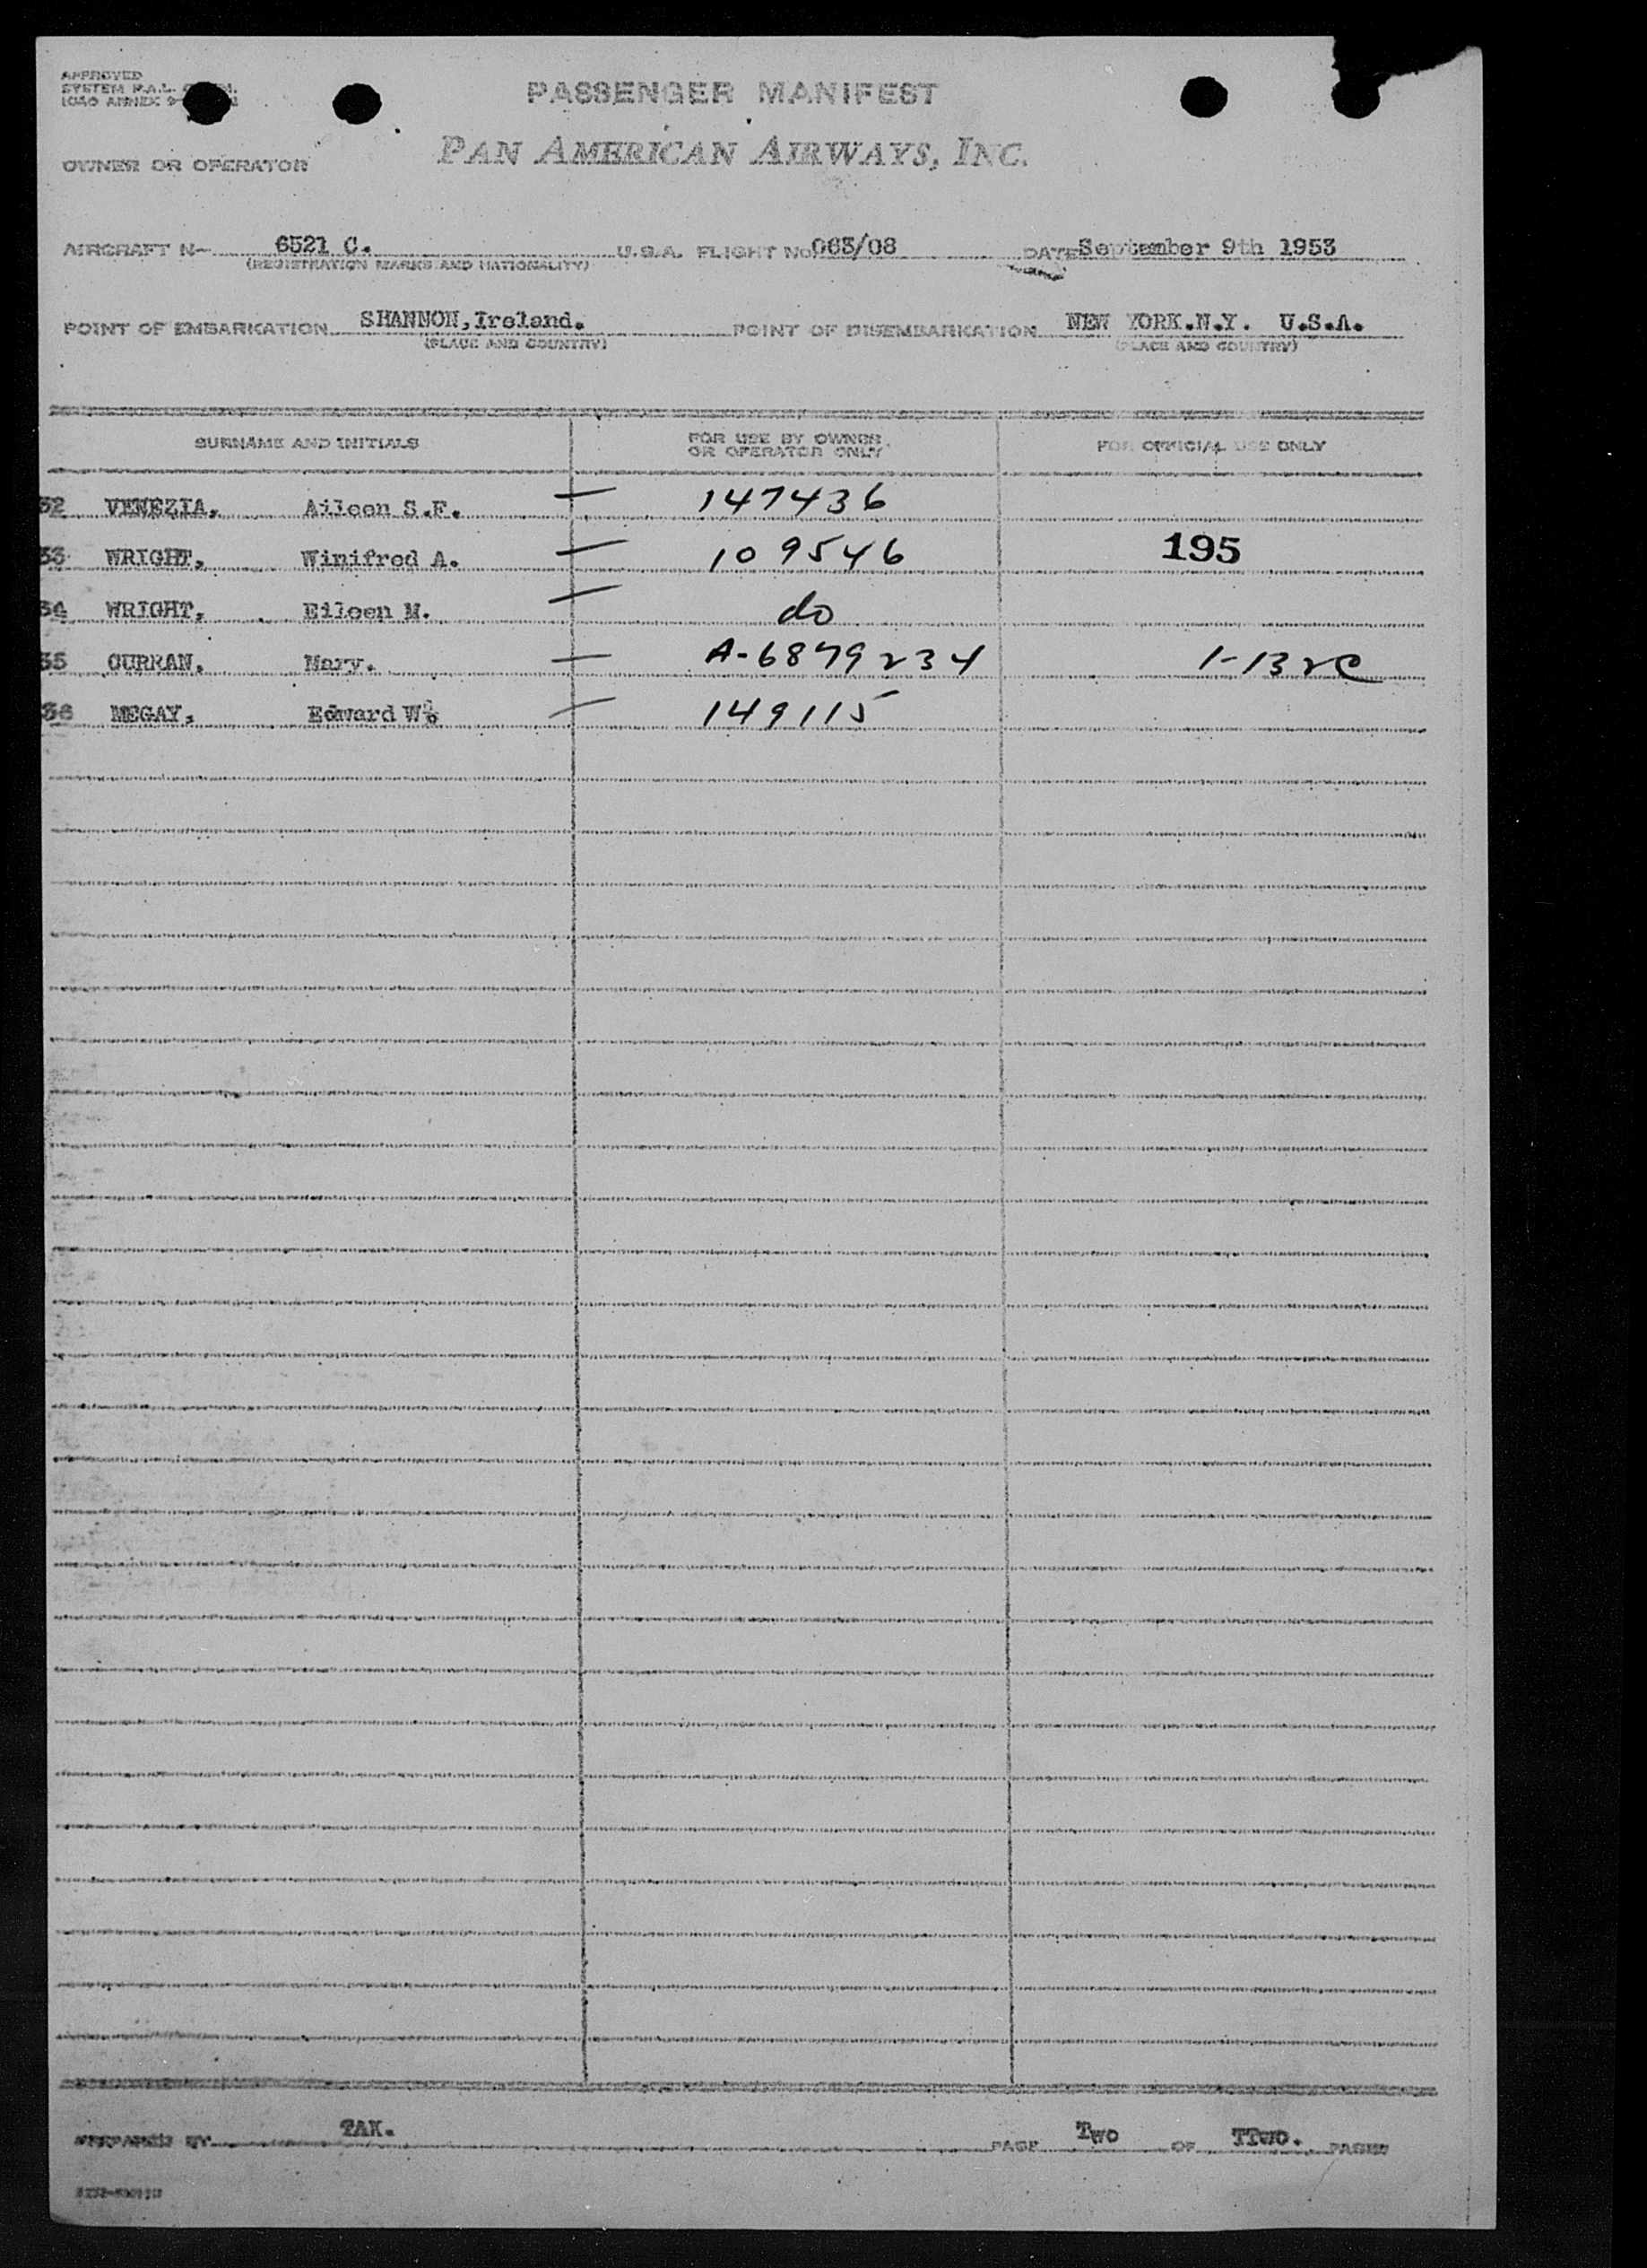 APPROVED
SYSTEM P.A.L.
ICAO ANNEX 9
PASSENGER MANIFEST
OWNER OR OPERATOR PAN AMERICAN AIRWAYS, INC.
AIRCRAFT N- 6521 C. U.S.A. FLIGHT No 063/08 DATE September 9th 1953
(REGISTRATION MARKS AND NATIONALITY)
POINT OF EMBARKATION SHANNON, Ireland. POINT OF DISEMBARKATION NEW YORK.N.Y. U.S.A.
(PLACE AND COUNTRY) (PLACE AND COUNTRY)
SURNAME AND INITIALS FOR USE BY OWNER OR OPERATOR ONLY FOR OFFICIAL USE ONLY
32 VENEZIA, Aileen S.F. — 147436
33 WRIGHT, Winifred A. — 109546 195
34 WRIGHT, Eileen M. — do
35 CURRAN, Mary. — A-6879234 1-132C
36 MEGAY, Edward W. — 149115
PREPARED BY TAK. PAGE Two OF TTwo. PAGES